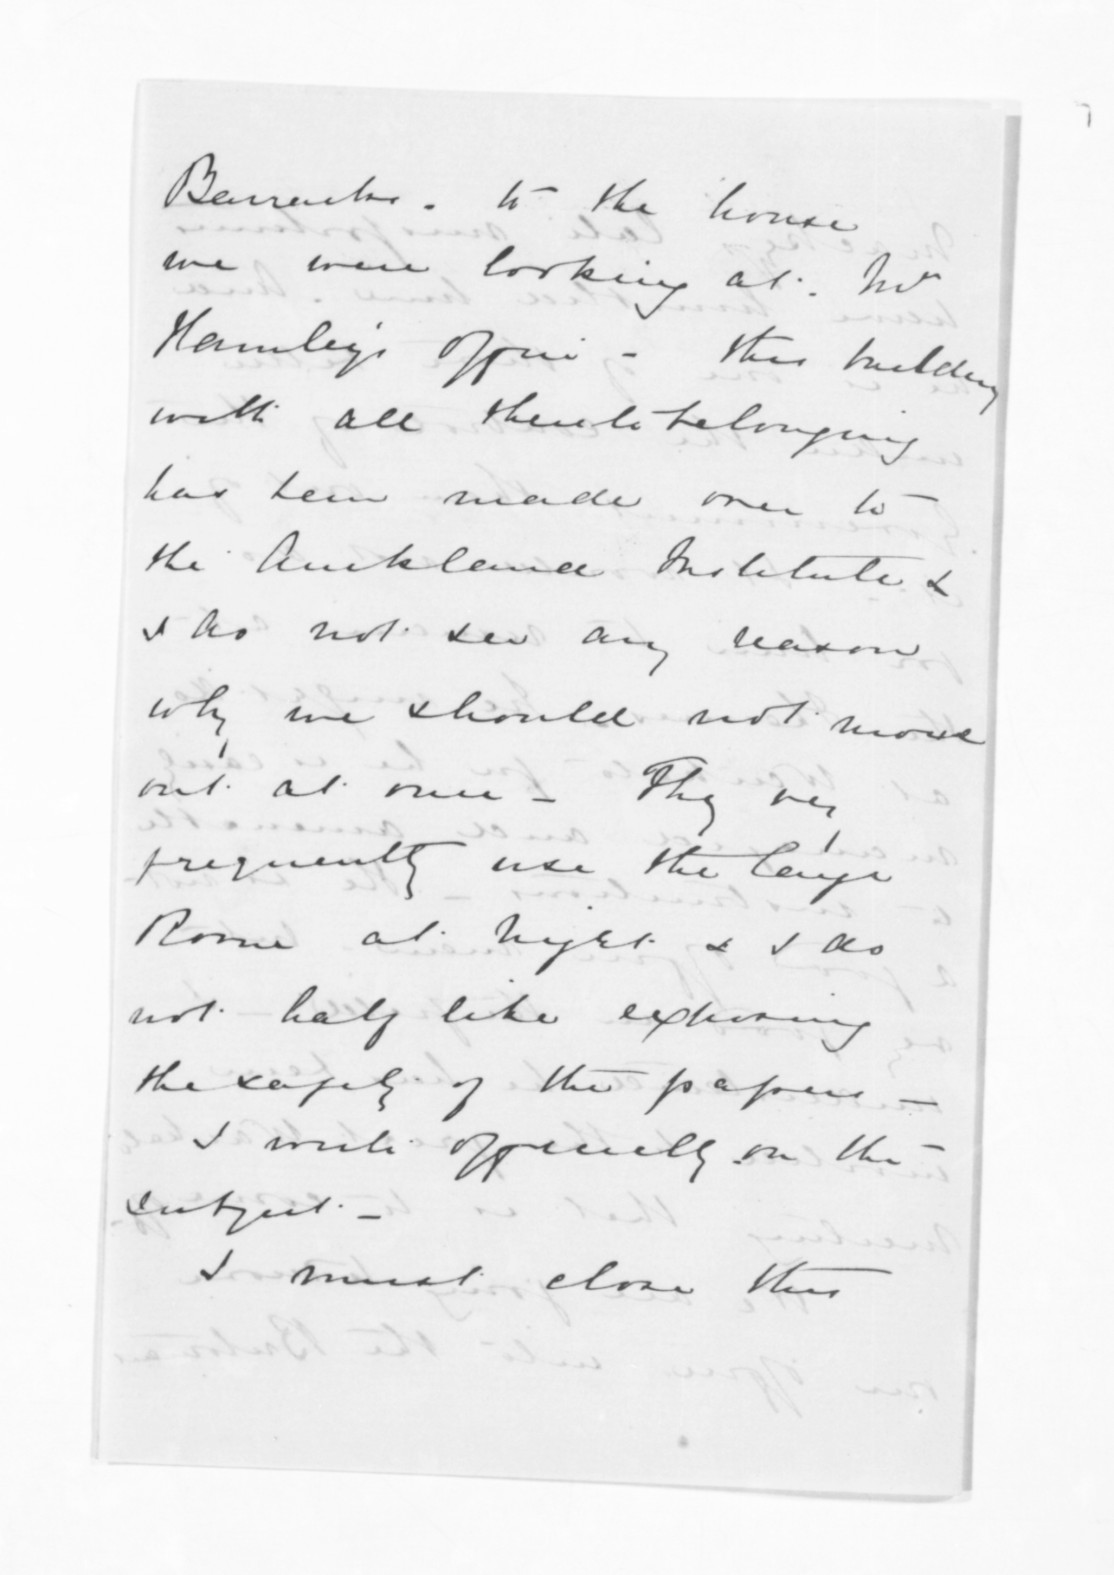 Barracks. to the house
we were looking at. Mr
Hamley's office - this building
with all thereto belonging
has been made over to
the Auckland Institute &
I do not see any reason
why we should not move
out at once - They very
frequently use the large
Room at Night & I do
not half like exposing
the safety of the papers -
I write officially on the
subject. -
I must close this